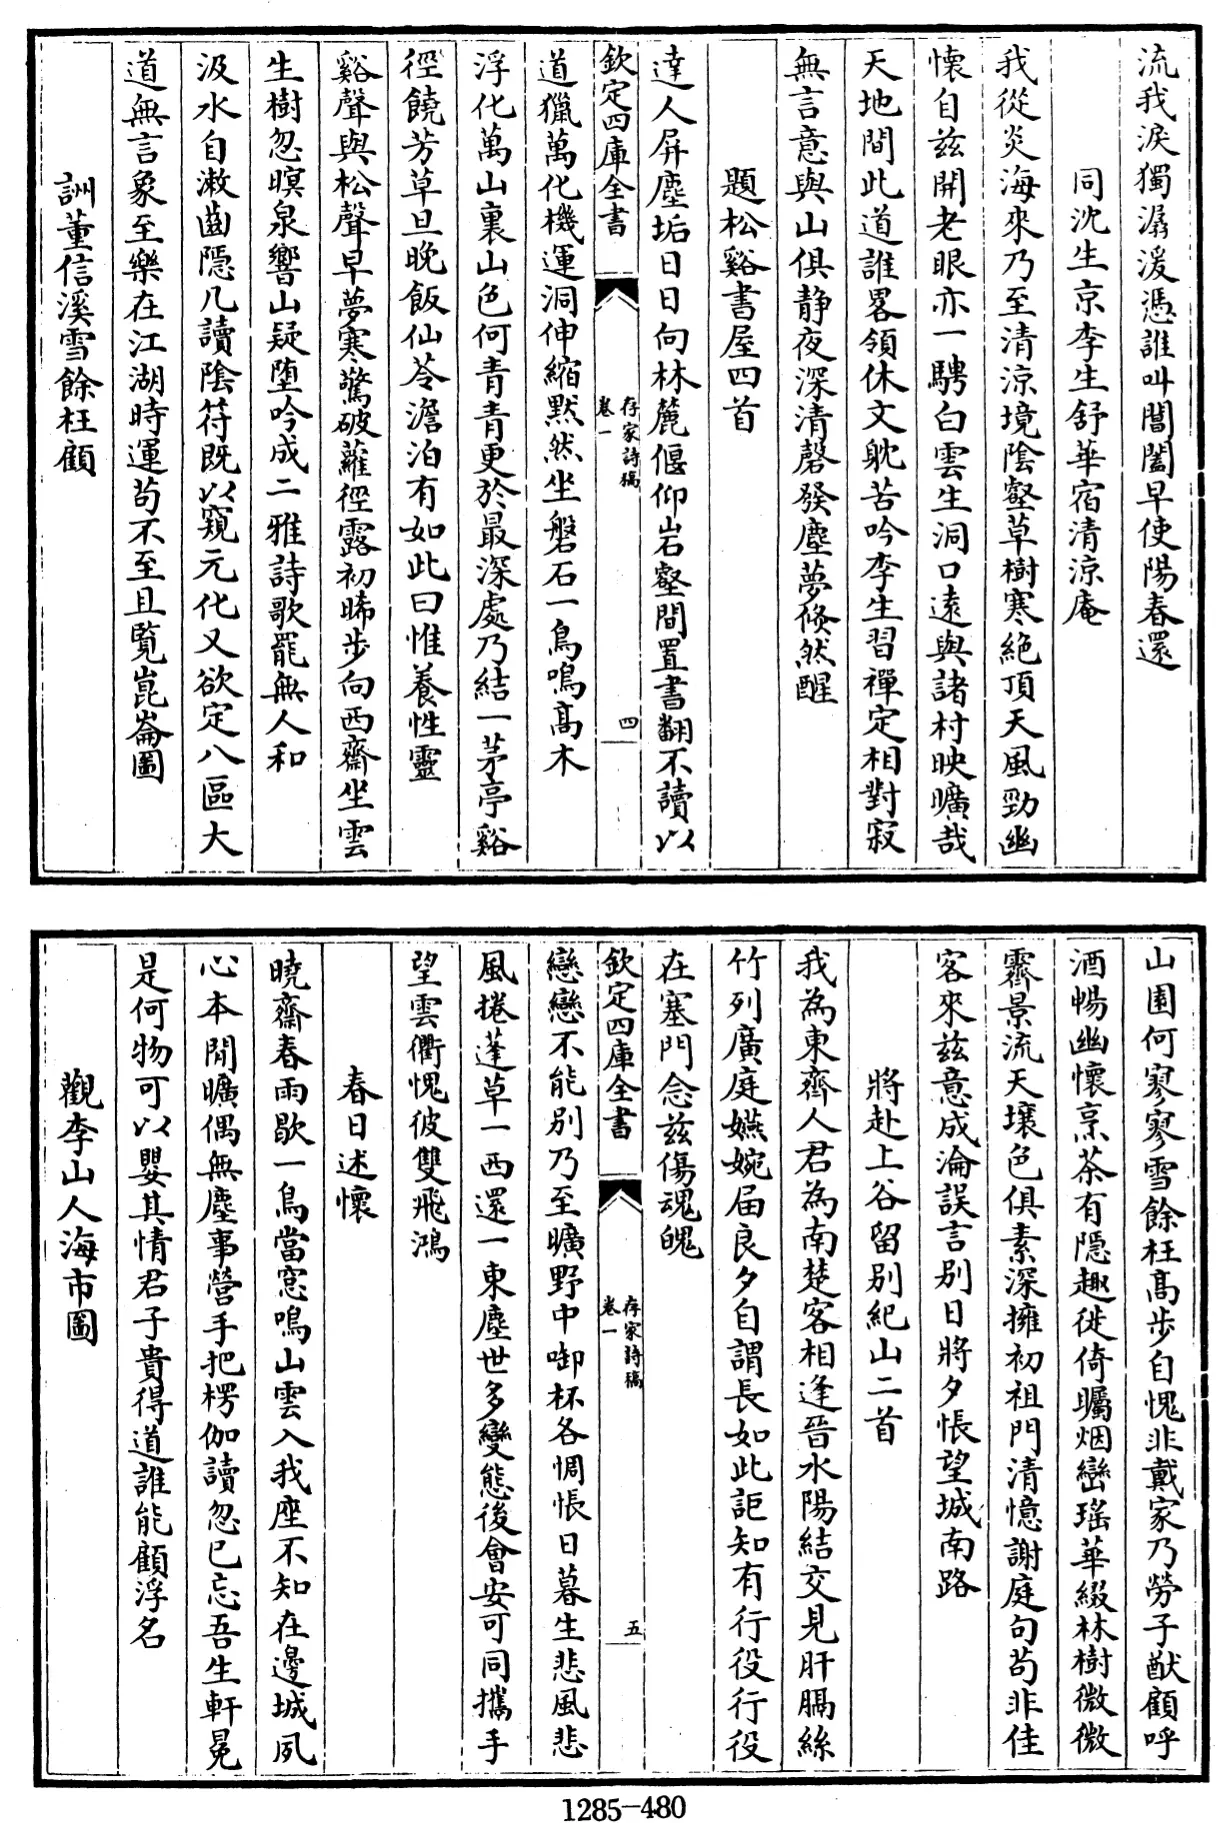 流我淚獨潺湲憑誰叫閶闔早使陽春還
同沈生京李生舒華宿清涼庵
我從炎海來乃至清涼境陰壑草樹寒絶頂天風勁幽
懷自兹開老眼亦一騁白雲生洞口遠與諸村映曠哉
天地間此道誰畧領休文躭苦吟李生習禪定相對寂
無言意與山俱静夜深清磬發塵夢倏然醒
題松谿書屋四首
達人屏塵垢日日向林麓偃仰岩壑間置書翻不讀以
欽定四庫全書
存家詩稿
卷一
四
道獵萬化機運洞伸縮黙然坐磐石一鳥鳴高木
浮化萬山裏山色何青青更於最深處乃結一茅亭谿
徑饒芳草旦晚飯仙苓澹泊有如此曰惟養性靈
谿聲與松聲早夢寒驚破蘿徑露初晞步向西齋坐雲
生樹忽暝泉響山疑墮吟成二雅詩歌罷無人和
汲水自漱齒隱几讀陰符既以窺元化又欲定八區大
道無言象至樂在江湖時運苟不至且覧崑崙圖
詶董信溪雪餘枉顧
山園何寥寥雪餘枉高步自愧非戴家乃勞子猷顧呼
酒暢幽懷烹茶有隱趣徙倚矚烟巒瑤華綴林樹微微
霽景流天壤色俱素深擁初祖門清憶謝庭句苟非佳
客來兹意成淪誤言别日將夕悵望城南路
將赴上谷留别紀山二首
我為東齊人君為南楚客相逢晉水陽結交見肝膈絲
竹列廣庭嬿婉届良夕自謂長如此詎知有行役行役
在塞門念兹傷魂魄
欽定四庫全書
存家詩稿
卷一
五
戀戀不能别乃至曠野中啣杯各惆悵日暮生悲風悲
風捲蓬草一西還一東塵世多變態後會安可同攜手
望雲衢愧彼雙飛鴻
春日述懷
曉齋春雨歇一鳥當窓鳴山雲入我座不知在邊城夙
心本閒曠偶無塵事營手把楞伽讀忽已忘吾生軒冕
是何物可以嬰其情君子貴得道誰能顧浮名
觀李山人海市圖
1285-480